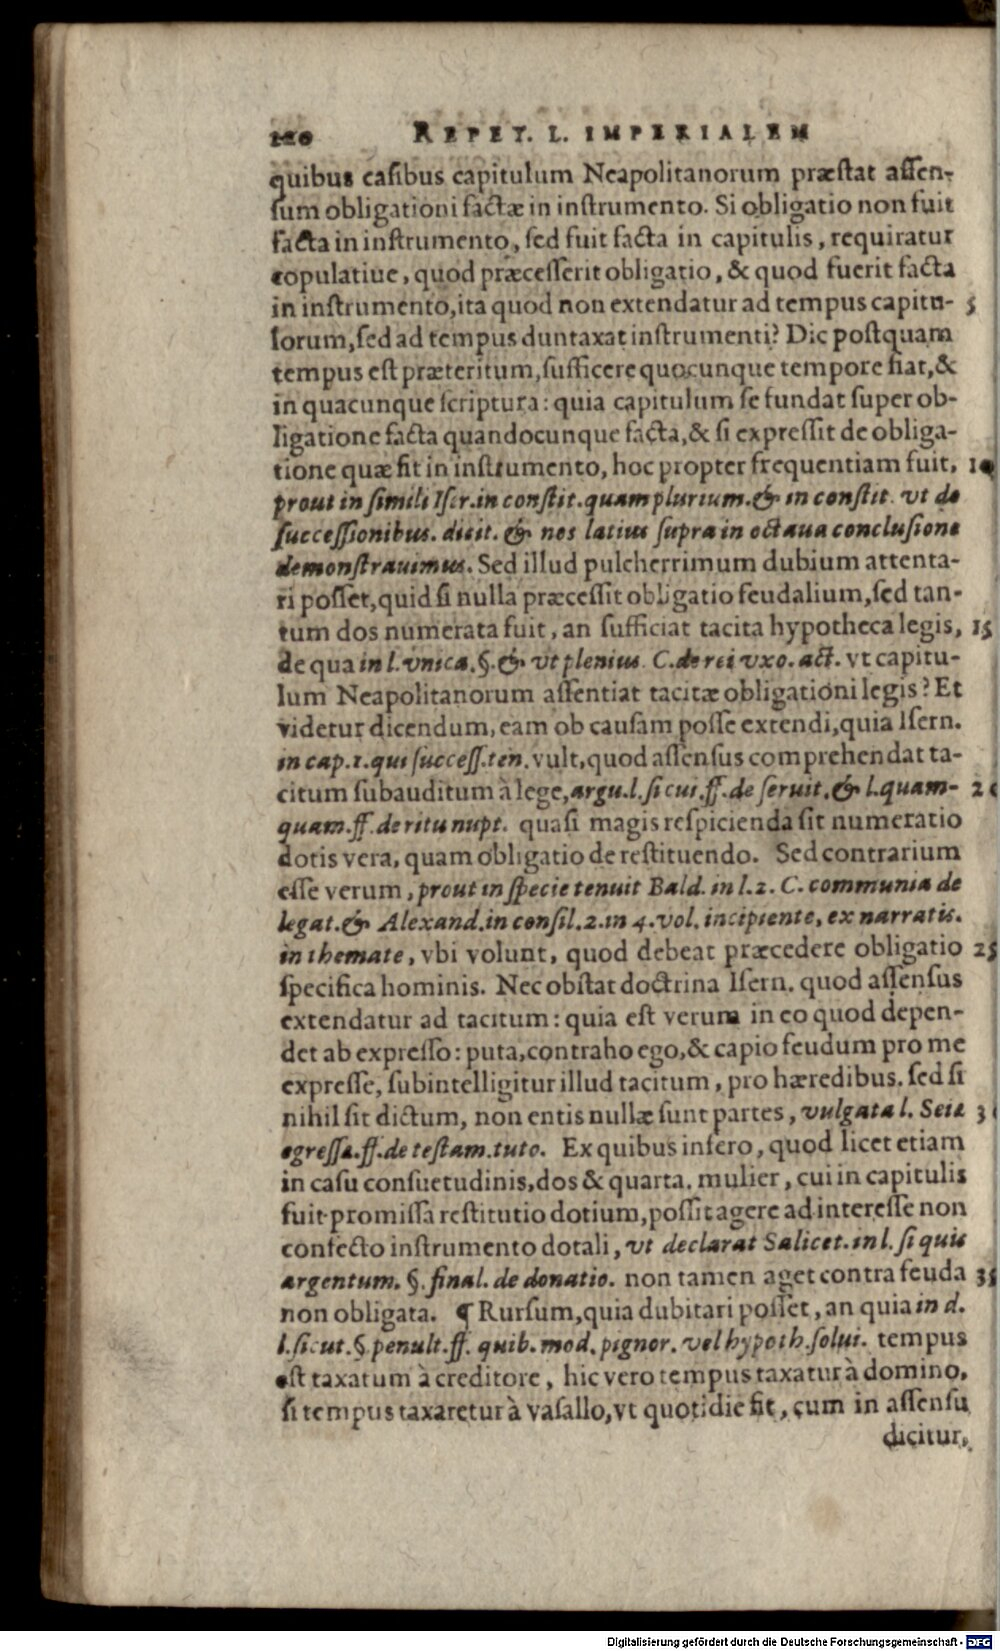 120 REPET. L. IMPERIALEM
quibus casibus capitulum Neapolitanorum præstat assen-
sum obligationi factæ in instrumento. Si obligatio non fuit
facta in instrumento, sed fuit facta in capitulis, requiratur
copulatiue, quod præcesserit obligatio, & quod fuerit facta
in instrumento, ita quod non extendatur ad tempus capitu- 5
lorum, sed ad tempus duntaxat instrumenti? Dic postquam
tempus est præteritum, sufficere quocunque tempore fiat, &
in quacunque scriptura: quia capitulum se fundat super ob-
ligatione facta quandocunque facta, & si expressit de obliga-
tione quæ fit in instrumento, hoc propter frequentiam fuit, 10
prout in simili Iser. in constit. quamplurium. & in constit. vt de
successionibus. dicit. & nos latius supra in octaua conclusione
demonstrauimus. Sed illud pulcherrimum dubium attenta-
ri posset, quid si nulla præcessit obligatio feudalium, sed tan-
tum dos numerata fuit, an sufficiat tacita hypotheca legis, 15
de qua in l. vnica. §. & vt plenius. C. de rei vxo. act. vt capitu-
lum Neapolitanorum assentiat tacitæ obligationi legis? Et
videtur dicendum, eam ob causam posse extendi, quia Isern.
in cap. 1. qui success. ten. vult, quod assensus comprehendat ta-
citum subauditum à lege, argu. l. si cui. ff. de seruit. & l. quam- 20
quam. ff. de ritu nupt. quasi magis respicienda sit numeratio
dotis vera, quam obligatio de restituendo. Sed contrarium
esse verum, prout in specie tenuit Bald. in l. 2. C. communia de
legat. & Alexand. in consil. 2. in 4. vol. incipiente, ex narratis.
in themate, vbi volunt, quod debeat præcedere obligatio 25
specifica hominis. Nec obstat doctrina Isern. quod assensus
extendatur ad tacitum: quia est verum in eo quod depen-
det ab expresso: puta, contraho ego, & capio feudum pro me
expresse, subintelligitur illud tacitum, pro hæredibus. sed si
nihil sit dictum, non entis nullæ sunt partes, vulgata l. Seiæ 30
egressa. ff. de testam. tuto. Ex quibus infero, quod licet etiam
in casu consuetudinis, dos & quarta. mulier, cui in capitulis
fuit promissa restitutio dotium, possit agere ad interesse non
confecto instrumento dotali, vt declarat Salicet. in l. si quis
argentum. §. final. de donatio. non tamen aget contra feuda 35
non obligata. ¶ Rursum, quia dubitari posset, an quia in d.
l. sicut. §. penult. ff. quib. mod. pignor. vel hypoth. solui. tempus
est taxatum à creditore, hic vero tempus taxatur à domino,
si tempus taxaretur à vasallo, vt quotidie fit, cum in assensu
dicitur,
Digitalisierung gefördert durch die Deutsche Forschungsgemeinschaft - DFG